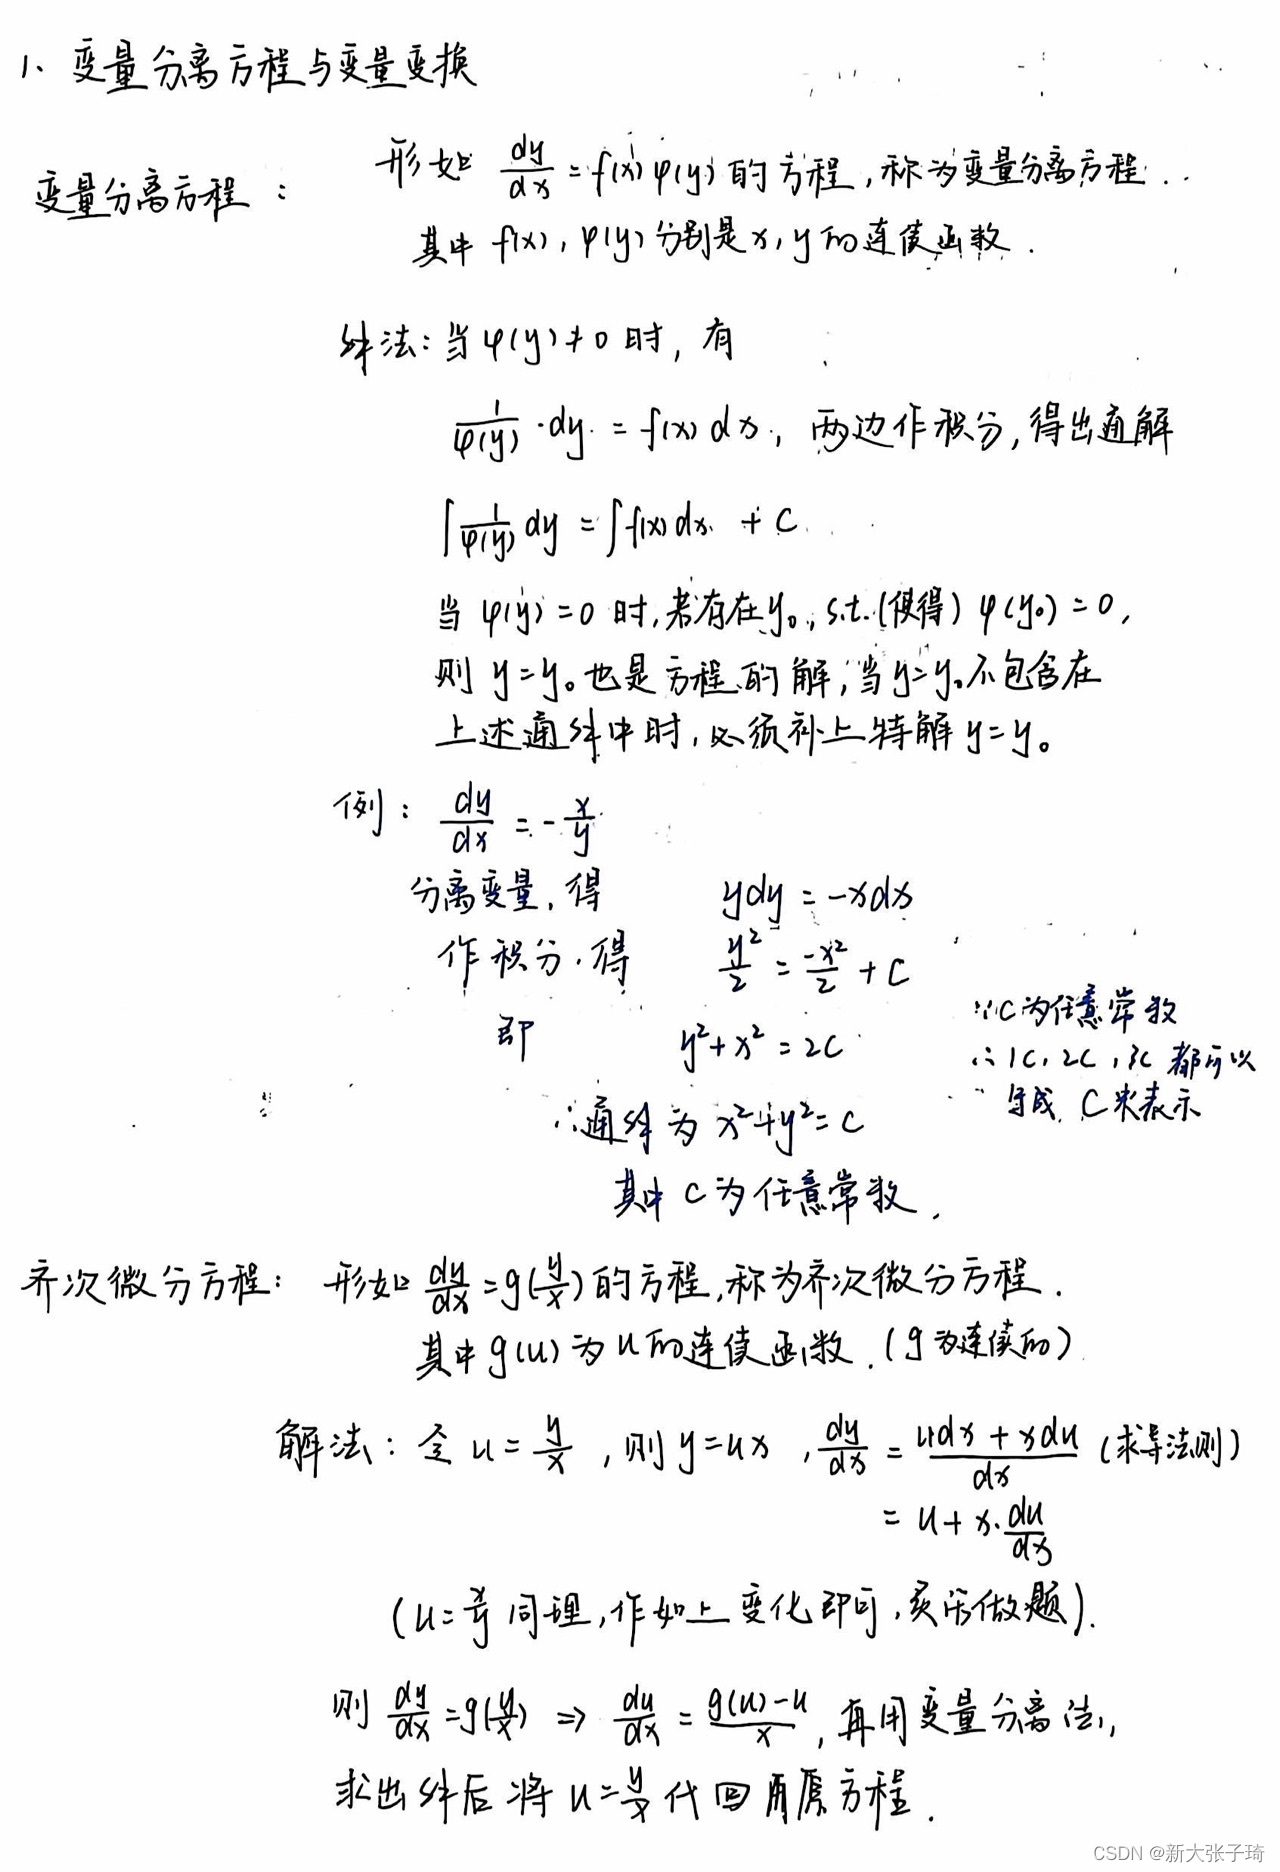 1、变量分离方程与变量变换
变量分离方程： 形如 dy/dx = f(x)φ(y) 的方程，称为变量分离方程.
其中 f(x), φ(y) 分别是 x, y 的连续函数.
解法：当 φ(y)≠0 时，有
1/φ(y) · dy = f(x)dx, 两边作积分,得出通解
∫ 1/φ(y) dy = ∫ f(x)dx + C
当 φ(y)=0 时,若存在y₀, s.t.(使得) φ(y₀)=0,
则 y=y₀ 也是方程的解,当y=y₀不包含在
上述通解中时,必须补上特解 y=y₀
例： dy/dx = -x/y
分离变量,得 ydy = -xdx
作积分,得 y²/2 = -x²/2 + C
即 y²+x² = 2C
∵C为任意常数
∴1C, 2C, 3C 都可以
写成 C来表示
∴通解为 x²+y²=C
其中 C为任意常数.
齐次微分方程： 形如 dy/dx = g(y/x) 的方程,称为齐次微分方程.
其中 g(u) 为 u 的连续函数.(g为连续的)
解法：令 u = y/x , 则 y=ux , dy/dx = (udx + xdu)/dx (求导法则)
= u + x·du/dx
(u = x/y 同理,作如上变化即可,灵活做题).
则 dy/dx = g(y/x) ⇒ du/dx = (g(u)-u)/x , 再用变量分离法,
求出解后将 u = y/x 代回原方程.
CSDN @新大张子琦